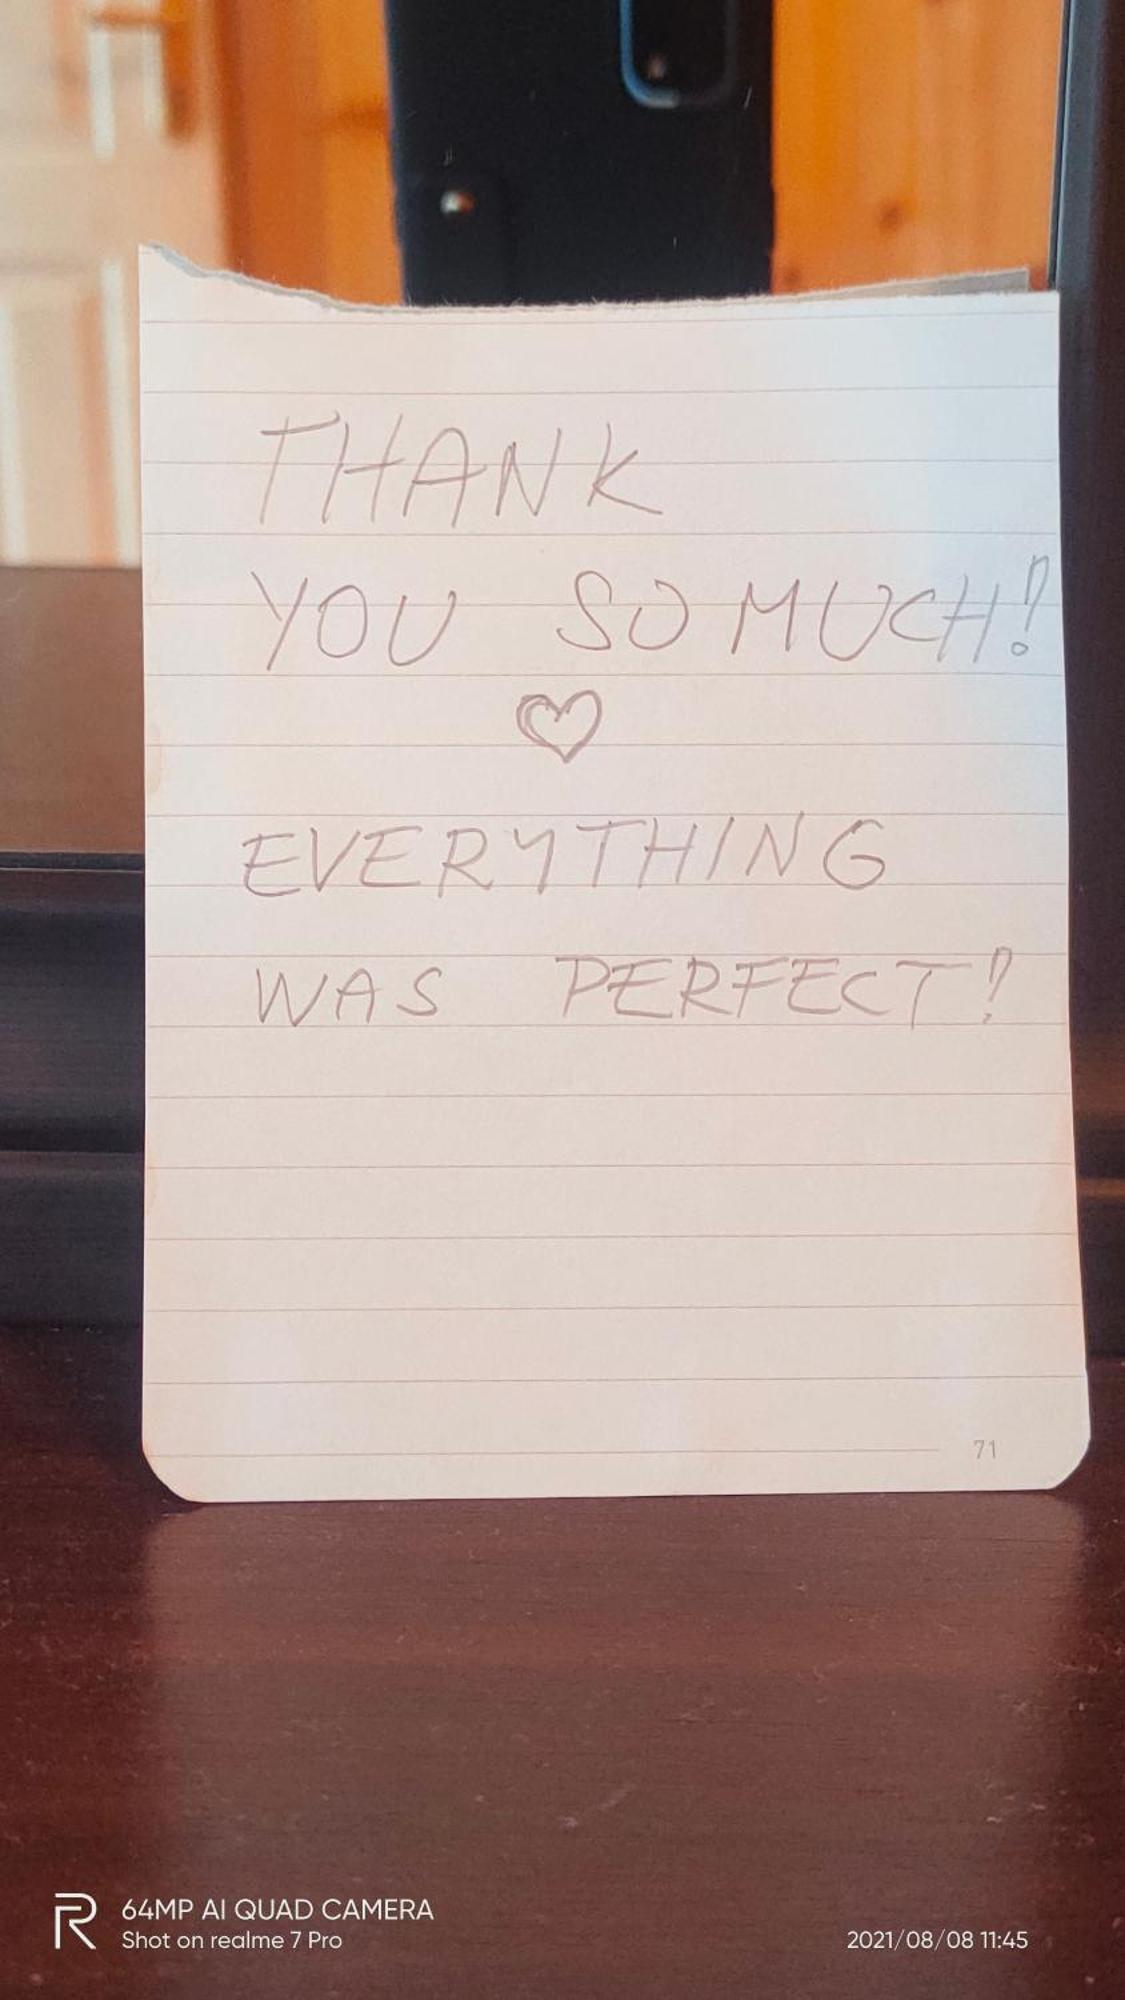 THANK
YOU SO MUCH!
EVERYTHING
WAS PERFECT!
71
64MP AI QUAD CAMERA
Shot on realme 7 Pro
2021/08/08 11:45